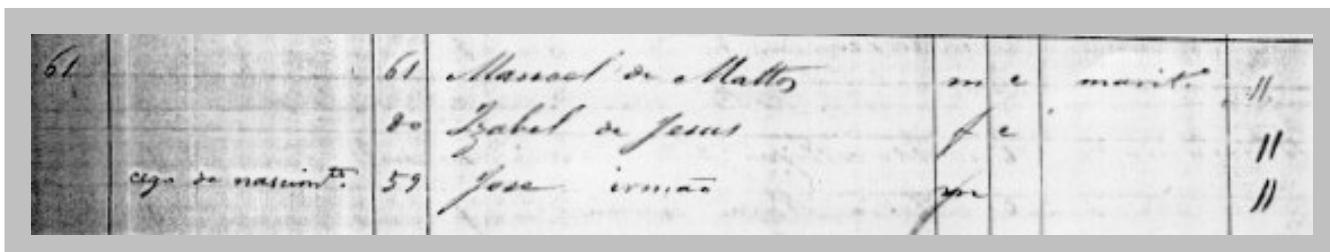 61 61 Manoel de Mattos m c marit.º "
80 Izabel de Jesus f c "
cego de nascimtº. 59 Jose irmão m "